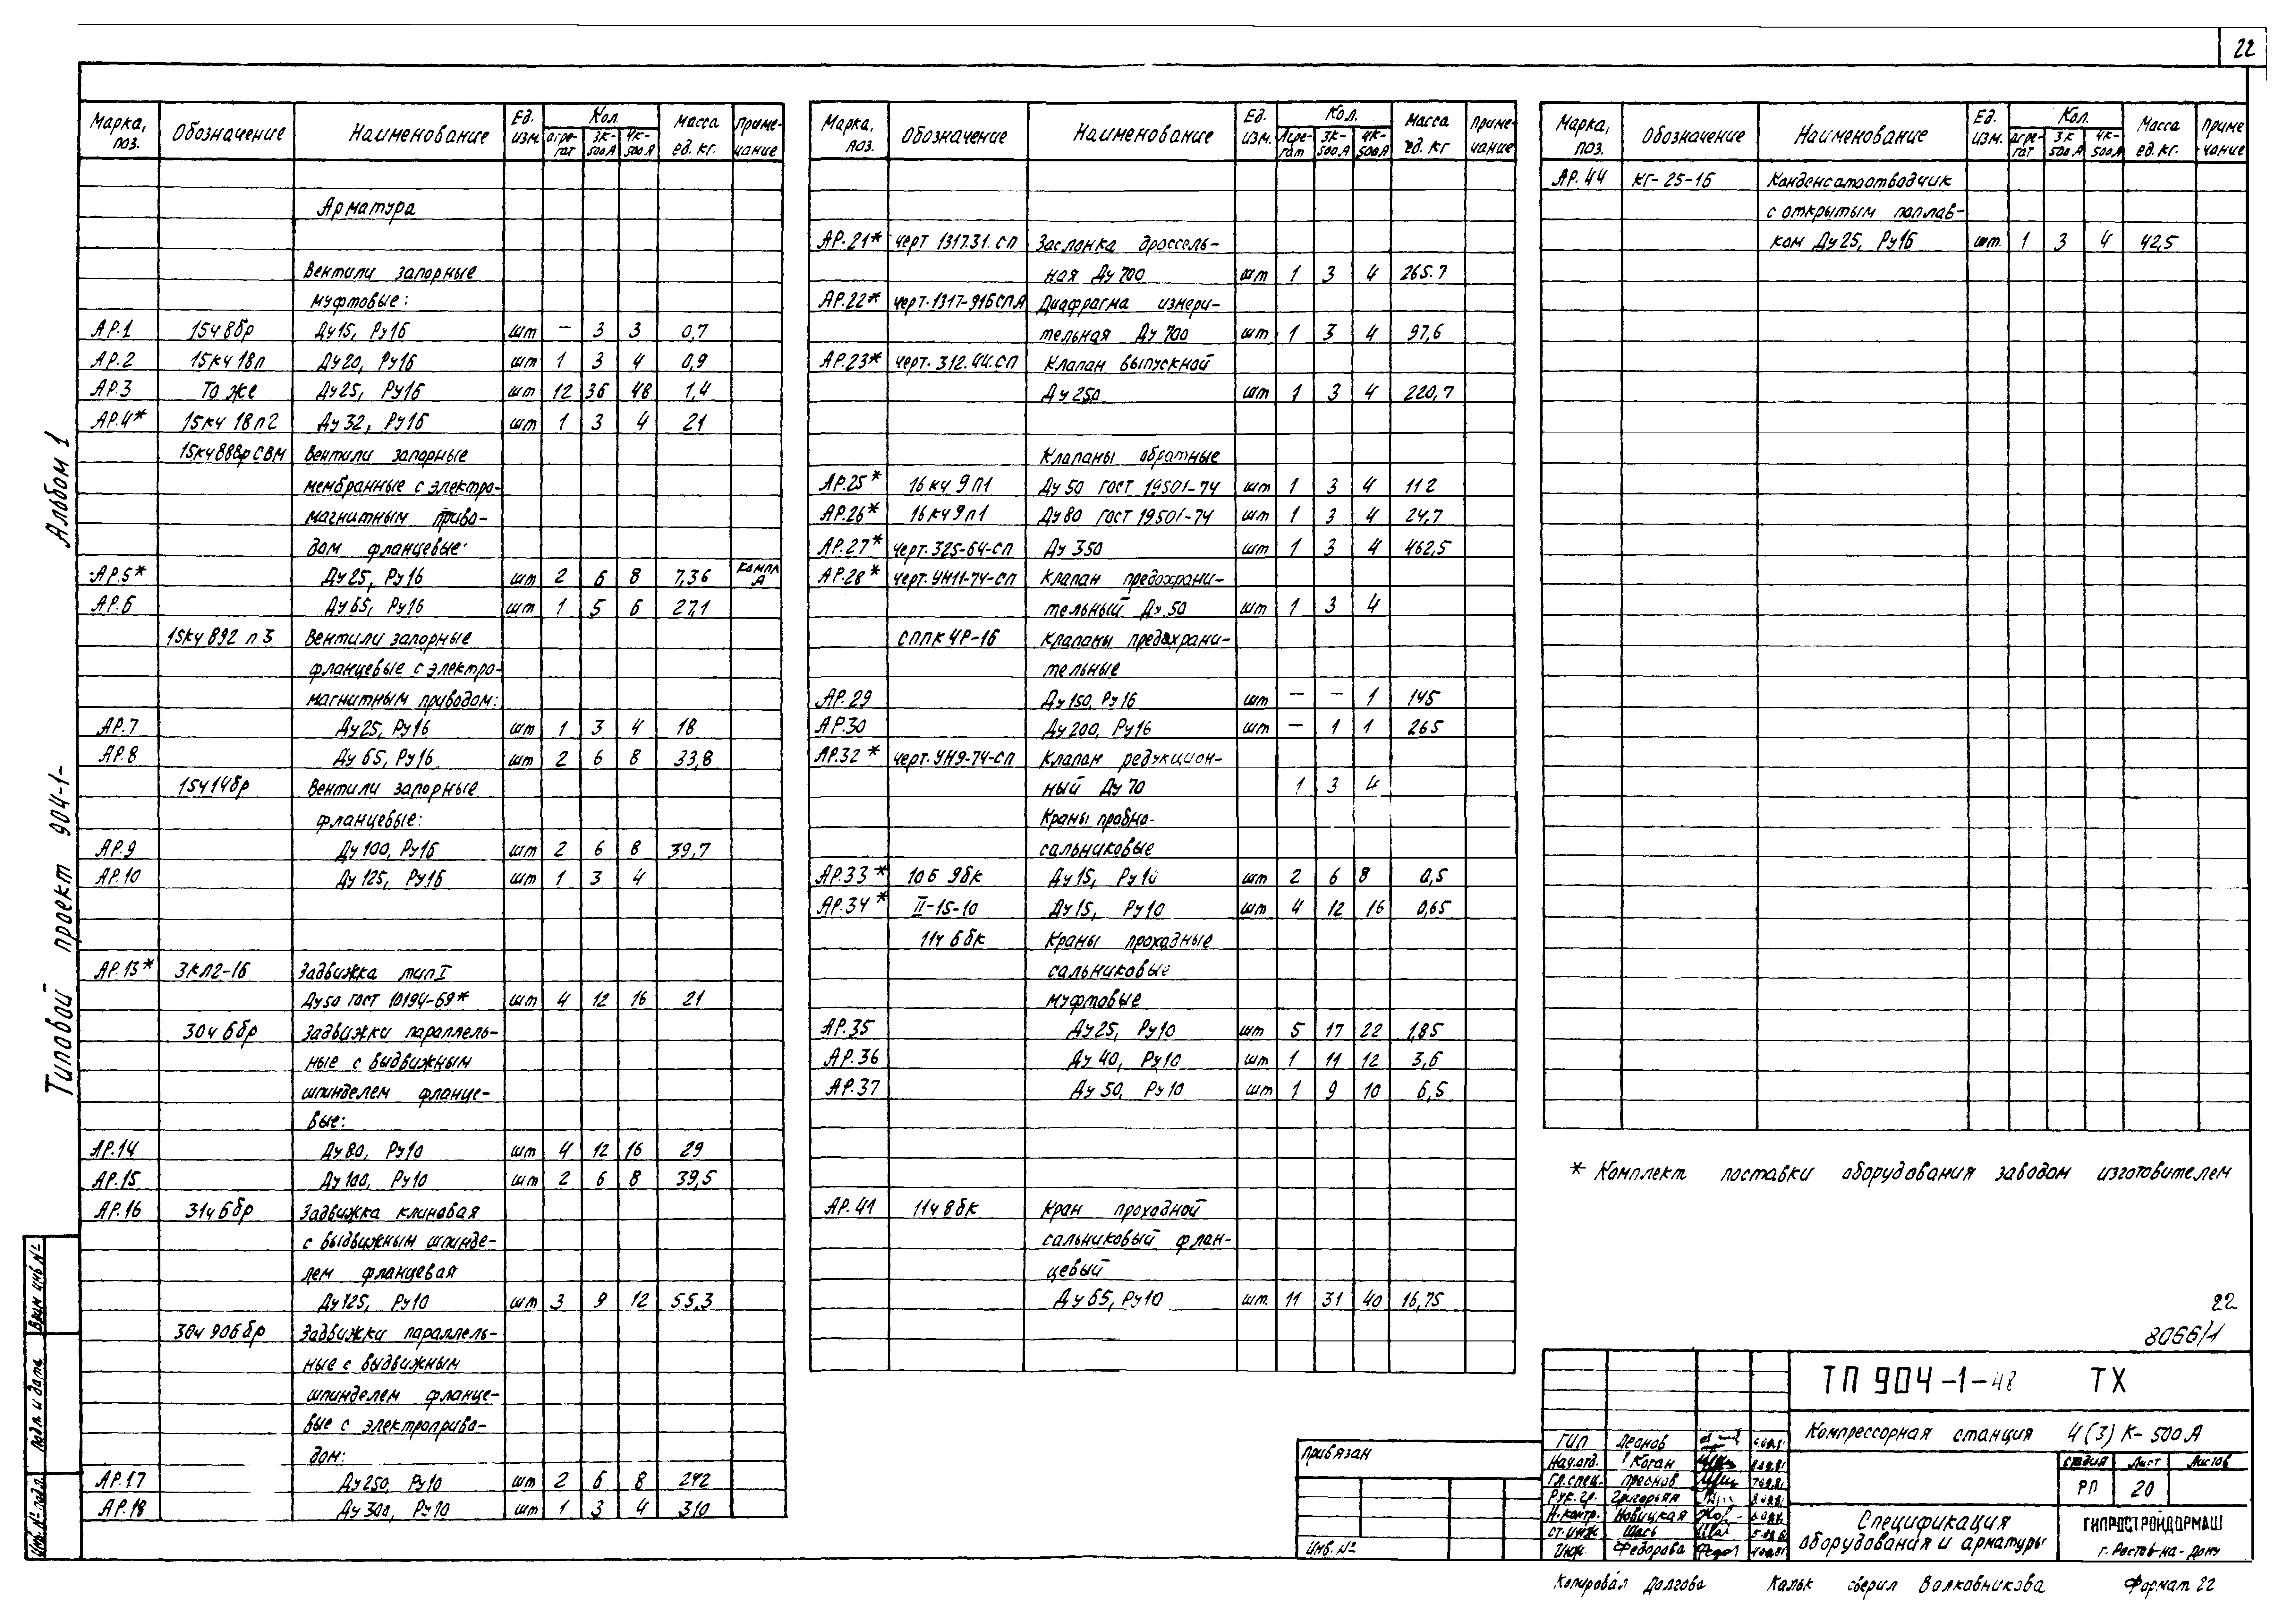 22
Альбом 1
Типовой проект 904-1-
Марка, поз. Обозначение Наименование Ед. изм. Кол. агре-гат 3К-500А 4К-500А Масса ед. кг. Приме-чание
Арматура
Вентили запорные
муфтовые:
АР.1 15ч8бр Ду15, Ру16 шт — 3 3 0,7
АР.2 15кч18п Ду20, Ру16 шт 1 3 4 0,9
АР.3 То же Ду25, Ру16 шт 12 36 48 1,4
АР.4* 15кч18п2 Ду32, Ру16 шт 1 3 4 21
15кч888рСВМ Вентили запорные
мембранные с электро-
магнитным приво-
дом фланцевые:
АР.5* Ду25, Ру16 шт 2 6 8 7,36 Компл А
АР.6 Ду65, Ру16 шт 1 5 6 27,1
15кч892п3 Вентили запорные
фланцевые с электро-
магнитным приводом:
АР.7 Ду25, Ру16 шт 1 3 4 18
АР.8 Ду65, Ру16 шт 2 6 8 33,8
15ч14бр Вентили запорные
фланцевые:
АР.9 Ду100, Ру16 шт 2 6 8 39,7
АР.10 Ду125, Ру16 шт 1 3 4
АР.13* ЗКЛ2-16 Задвижка тип I
Ду50 ГОСТ 10194-69* шт 4 12 16 21
30ч6бр Задвижки параллель-
ные с выдвижным
шпинделем фланце-
вые:
АР.14 Ду80, Ру10 шт 4 12 16 29
АР.15 Ду100, Ру10 шт 2 6 8 39,5
АР.16 31ч6бр Задвижка клиновая
с выдвижным шпинде-
лем фланцевая
Ду125, Ру10 шт 3 9 12 55,3
30ч906бр Задвижки параллель-
ные с выдвижным
шпинделем фланце-
вые с электроприво-
дом:
АР.17 Ду250, Ру10 шт 2 6 8 242
АР.18 Ду300, Ру10 шт 1 3 4 310
Марка, поз. Обозначение Наименование Ед. изм. Кол. Агре-гат 3К-500А 4К-500А Масса ед. кг Приме-чание
АР.21* черт 1317.31.СП Заслонка дроссель-
ная Ду700 шт 1 3 4 265.7
АР.22* черт.1317-91БСПА Диафрагма измери-
тельная Ду 700 шт 1 3 4 97,6
АР.23* черт. 312.44.СП Клапан выпускной
Ду250 шт 1 3 4 220,7
Клапаны обратные
АР.25* 16кч9п1 Ду50 ГОСТ 19501-74 шт 1 3 4 112
АР.26* 16кч9п1 Ду80 ГОСТ 19501-74 шт 1 3 4 24,7
АР.27* черт.325-64-СП Ду350 шт 1 3 4 462,5
АР.28* черт.УН11-74-СП Клапан предохрани-
тельный Ду.50 шт 1 3 4
СППК4Р-16 Клапаны предохрани-
тельные
АР.29 Ду150, Ру16 шт — — 1 145
АР.30 Ду200, Ру16 шт — 1 1 265
АР.32* черт.УН9-74-СП Клапан редукцион-
ный Ду70 1 3 4
Краны пробно-
сальниковые
АР.33* 10Б9бк Ду15, Ру10 шт 2 6 8 0,5
АР.34* II-15-10 Ду15, Ру10 шт 4 12 16 0,65
11ч6бк Краны проходные
сальниковые
муфтовые
АР.35 Ду25, Ру10 шт 5 17 22 1,85
АР.36 Ду40, Ру10 шт 1 11 12 3,6
АР.37 Ду50, Ру10 шт 1 9 10 6,5
АР.41 11ч8бк Кран проходной
сальниковый флан-
цевый
Ду65, Ру10 шт. 11 31 40 16,75
Марка, поз. Обозначение Наименование Ед. изм. Кол. агре-гат 3К 500А 4К-500А Масса ед. кг. Приме-чание
АР.44 КГ-25-16 Конденсатоотводчик
с открытым поплав-
ком Ду25, Ру16 шт. 1 3 4 42,5
* Комплект поставки оборудования заводом изготовителем
22
8066/1
ТП 904-1-48 ТХ
Компрессорная станция 4(3)К-500А
Стадия Лист Листов
РП 20
Спецификация
оборудования и арматуры
ГИПРОСТРОЙДОРМАШ
г. Ростов-на-Дону
ГИП Леонов
Нач.отд. Коган
Гл.спец. Преснов
Рук.гр. Григорьян
Н.контр. Новицкая
Ст.инж Шась
Инж. Федорова
Привязан
Инв. №
Взам инв №
Подп. и дата
Инв. № подл.
Копировал Долгова Кальк сверил Волковникова Формат 22